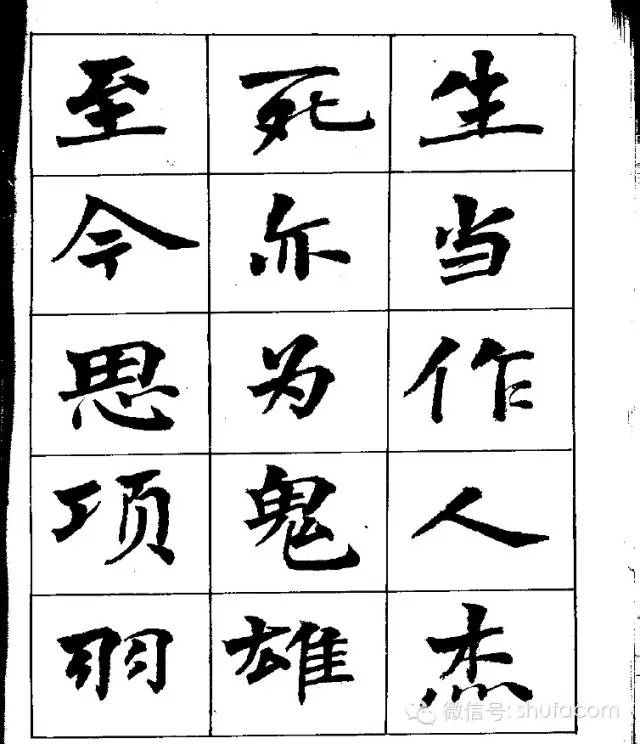 生当作人杰
死亦为鬼雄
至今思项羽
微信号: shufacom